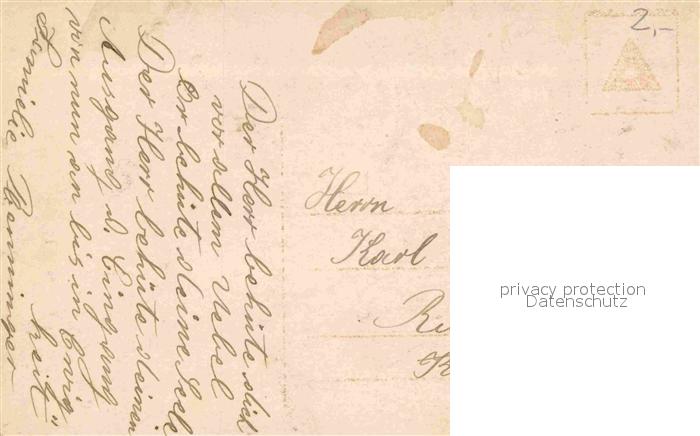 Der Herr behüte dich
vor allem Uebel
Er behüte deine Seele
Der Herr behüte deinen
Ausgang u. Eingang
von nun an bis in Ewig
keit"
Familie Renninger
2,-
Herrn
Karl
privacy protection
Datenschutz